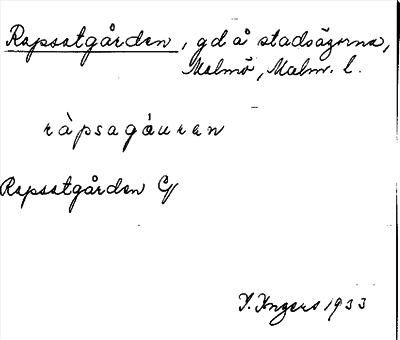 Rapsatgården, gd å stadsägorna,
Malmö, Malm. l.
ràpsagáuran
Rapsatgården
I. Ingers 1933